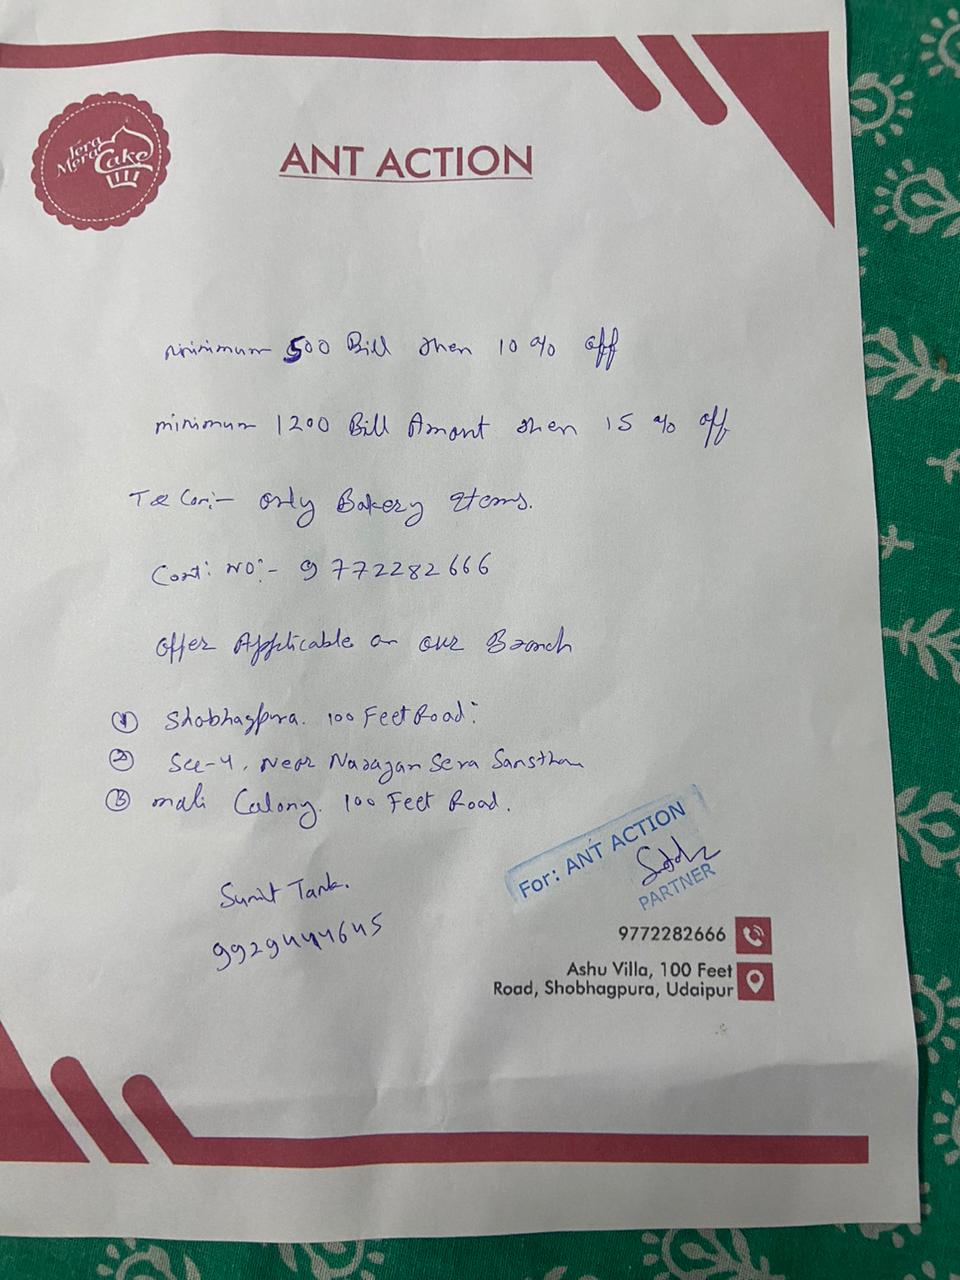 Tera
Mera Cake
ANT ACTION
minimum 500 Bill then 10 % off
minimum 1200 Bill Amont then 15 % off
T & Con:- only Bakery Items.
Cont: NO:- 9772282666
offer Applicable on our Branch
① Shobhagpura. 100 Feet Road:
② Sec-4, Near Narayan Seva Sansthan
③ mali Colony. 100 Feet Road.
For: ANT ACTION
PARTNER
Sumit Tank.
9929444645
9772282666
Ashu Villa, 100 Feet
Road, Shobhagpura, Udaipur